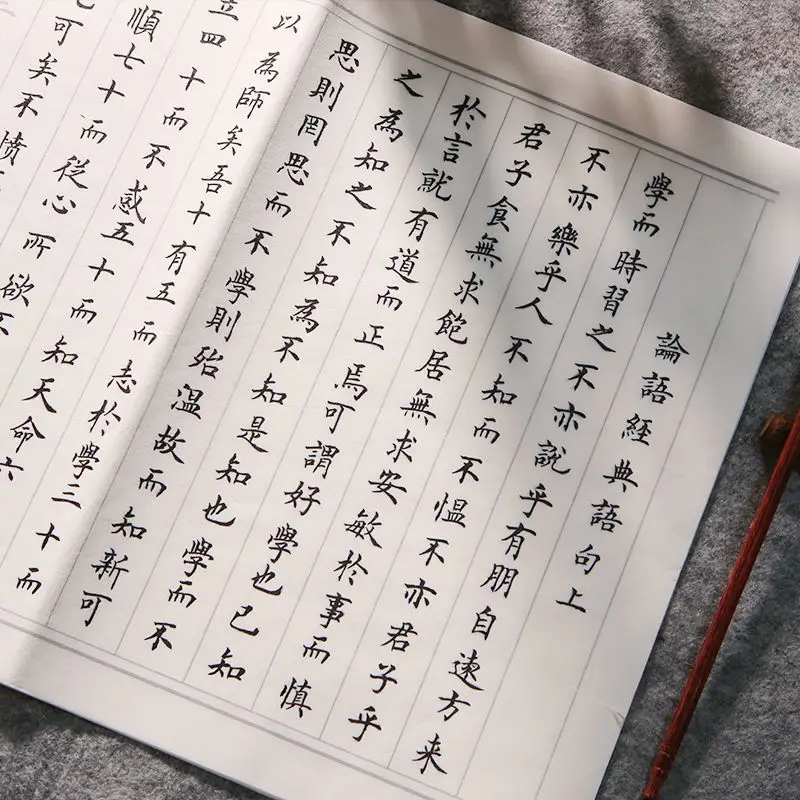 論語經典語句上
學而時習之不亦說乎有朋自遠方来
不亦樂乎人不知而不愠不亦君子乎
君子食無求飽居無求安敏於事而慎
於言就有道而正焉可謂好學也已知
之為知之不知為不知是知也學而不
思則罔思而不學則殆温故而知新可
以為師矣吾十有五而志於學三十而
立四十而不惑五十而知天命六
順七十而從心所欲不
可矣不憤